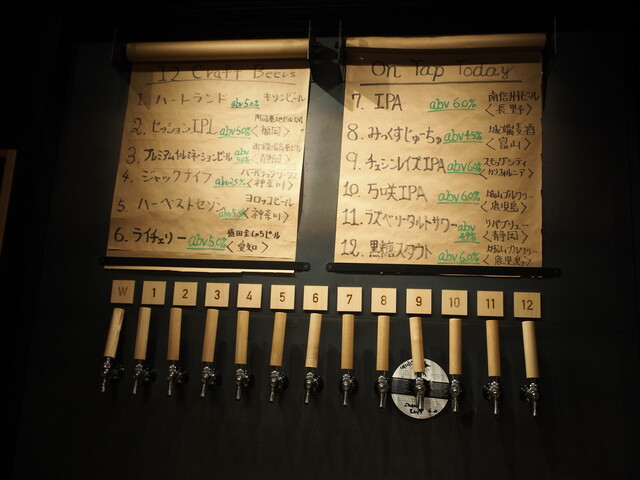 12 Craft Beers
1. ハートランド abv5.0% キリンビール
2. セッションIPL abv5.0% <福岡>
3. プレミアムイルミネーションビール abv 5.0% <静岡>
4. ジャックナイフ <神奈川>
5. ハーベストセゾン ヨロッコビール <神奈川>
6. ライチェリー abv5.0% 盛田金しゃちビール <愛知>
On Tap Today
7. IPA abv 6.0% 南信州ビール <長野>
8. みっくすじゅーちゅ abv4.5% 城端麦酒 <富山>
9. チェシンレイズIPA abv6.0% <カリフォルニア>
10. 万咲IPA abv6.0% 城山ブルワリー <鹿児島>
11. ラズベリータルトサワー abv 4.9% リパブリュー <静岡>
12. 黒糖スタウト abv6.0% 城山ブルワリー <鹿児島>
W 1 2 3 4 5 6 7 8 9 10 11 12